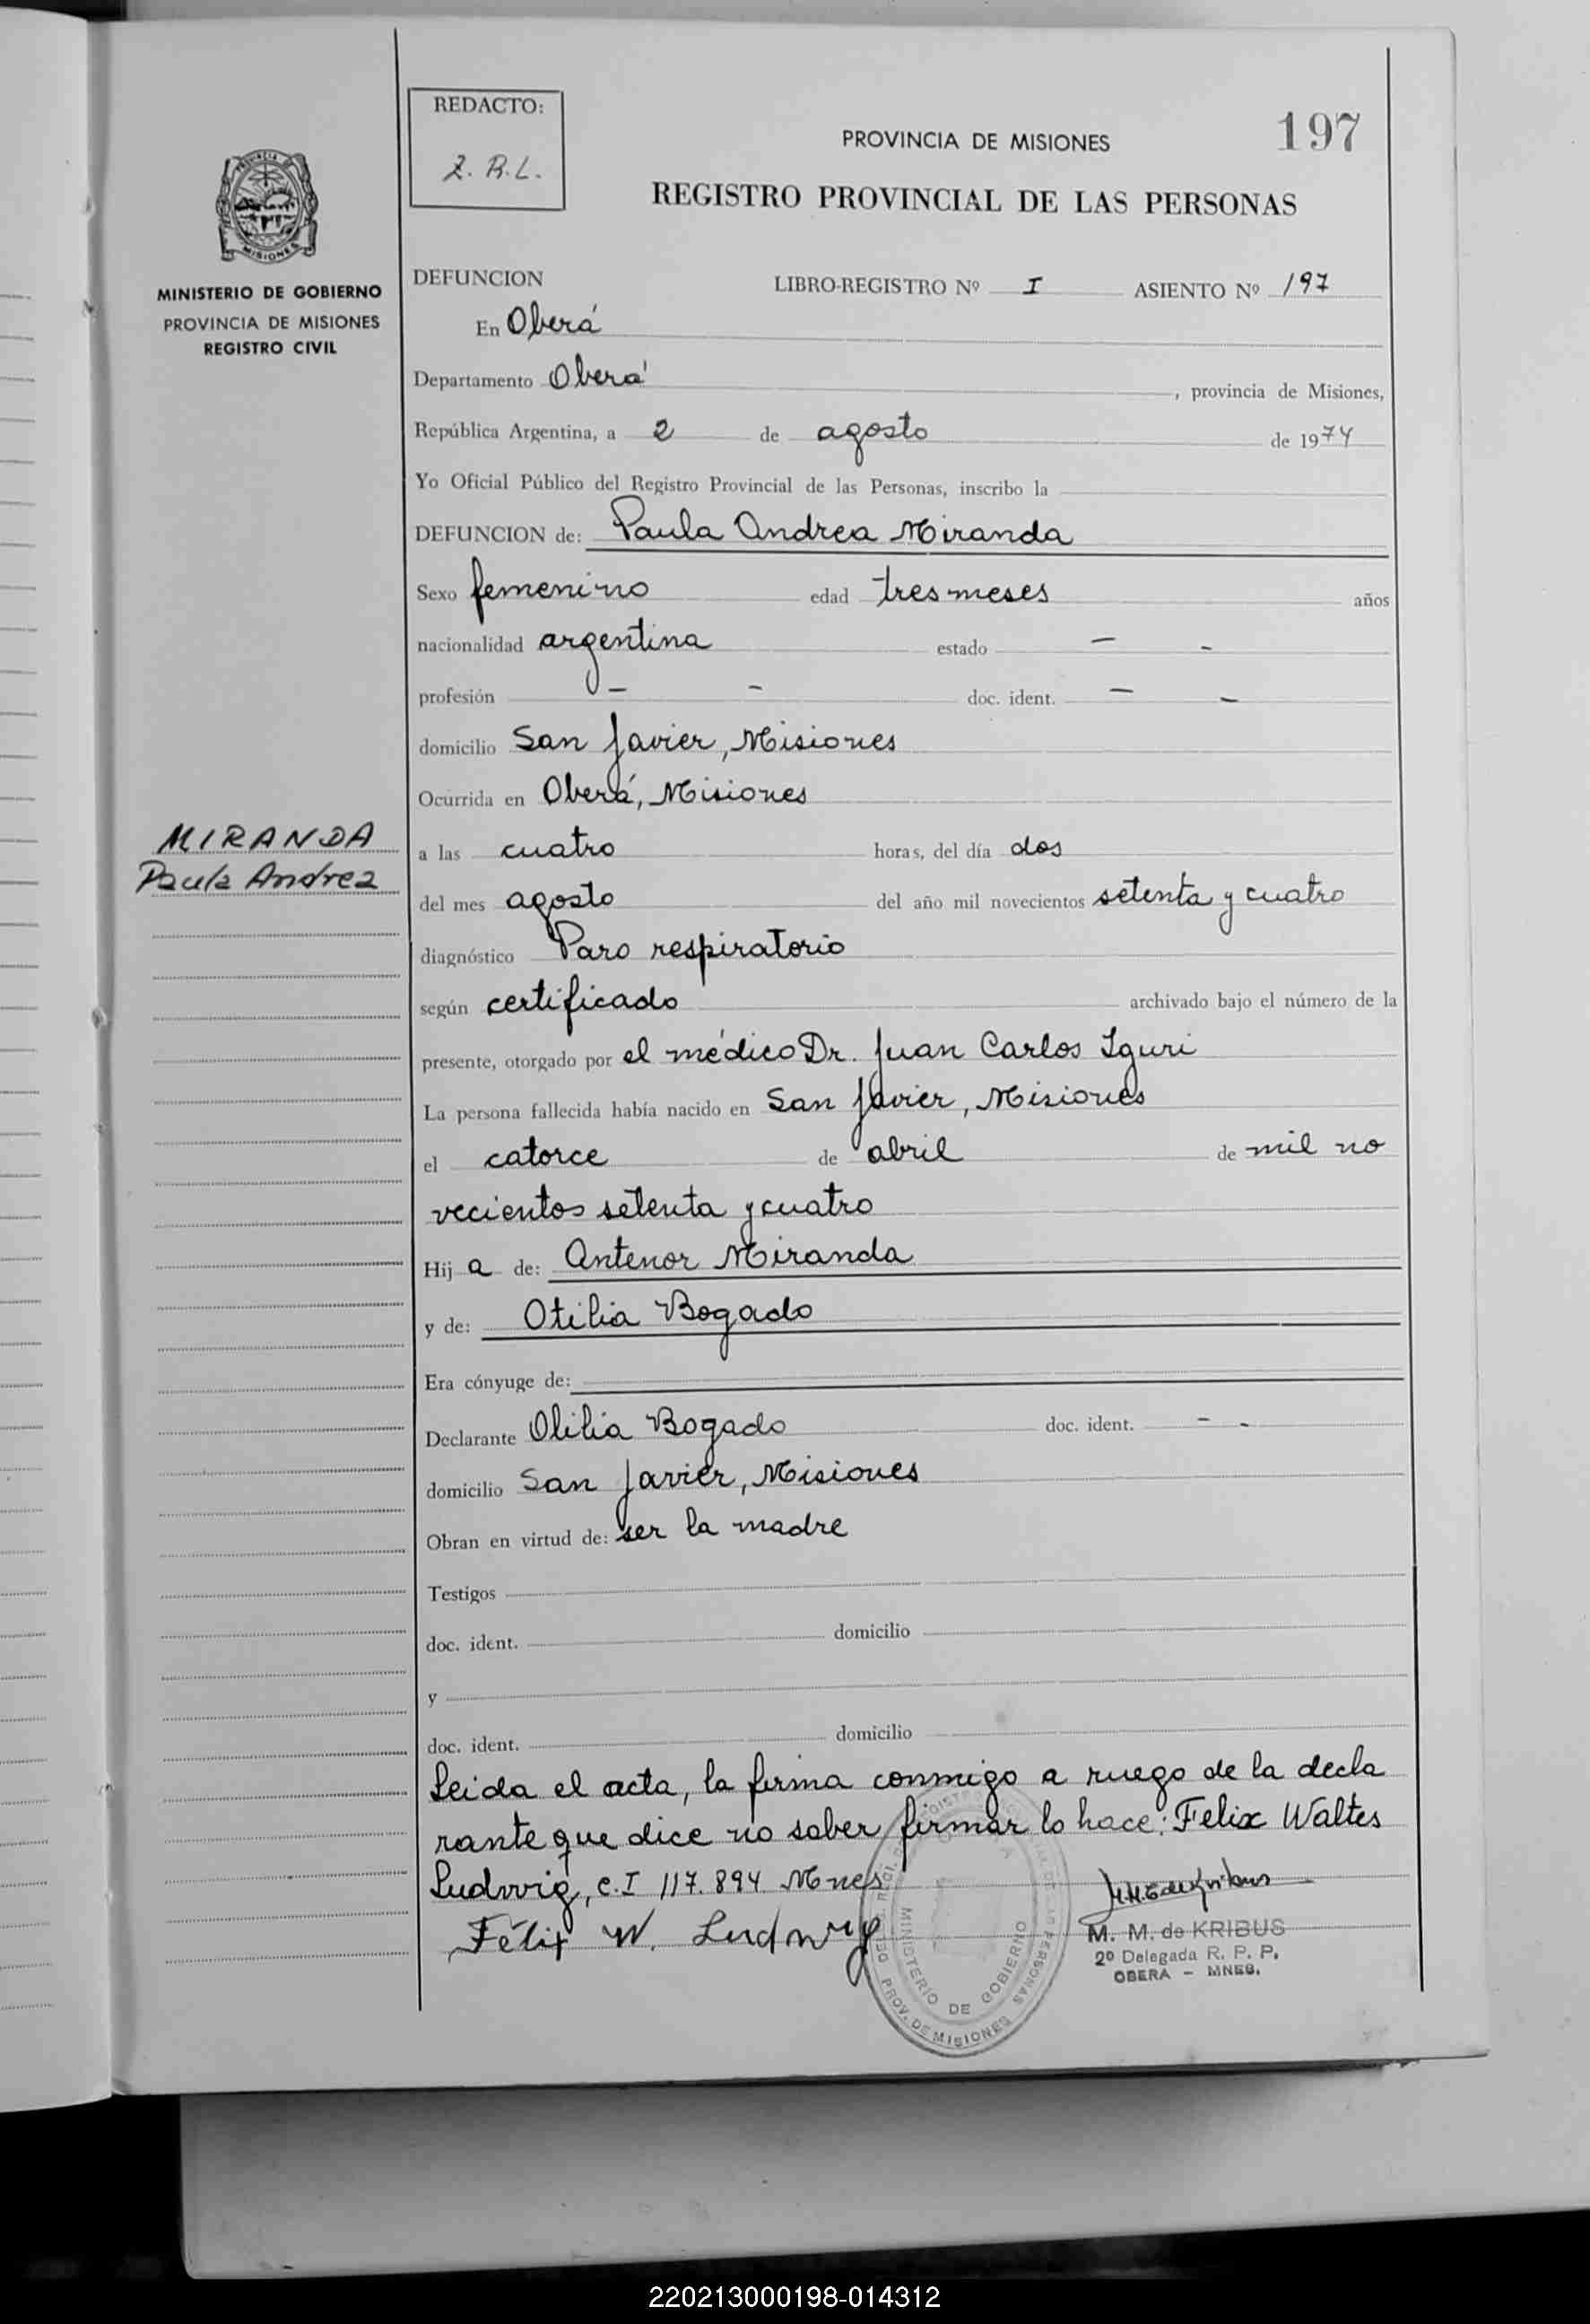 REDACTO:
Z. R.L.
197
PROVINCIA DE MISIONES
REGISTRO PROVINCIAL DE LAS PERSONAS
PROVINCIA DE
MISIONES
MINISTERIO DE GOBIERNO
PROVINCIA DE MISIONES
REGISTRO CIVIL
DEFUNCION LIBRO-REGISTRO Nº I ASIENTO Nº 197
En Oberá
Departamento Oberá, provincia de Misiones,
República Argentina, a 2 de agosto de 1974
Yo Oficial Público del Registro Provincial de las Personas, inscribo la
DEFUNCION de: Paula Andrea Miranda
Sexo femenino edad tres meses años
nacionalidad argentina estado — -
profesión — - doc. ident. — -
domicilio San Javier, Misiones
Ocurrida en Oberá, Misiones
MIRANDA
Paula Andrea
a las cuatro horas, del día dos
del mes agosto del año mil novecientos setenta y cuatro
diagnóstico Paro respiratorio
según certificado archivado bajo el número de la
presente, otorgado por el médico Dr. Juan Carlos Iguri
La persona fallecida había nacido en San Javier, Misiones
el catorce de abril de mil no
vecientos setenta y cuatro
Hij a de: Antenor Miranda
y de: Otilia Bogado
Era cónyuge de:
Declarante Otilia Bogado doc. ident. - -
domicilio San Javier, Misiones
Obran en virtud de: ser la madre
Testigos
doc. ident. domicilio
y
doc. ident. domicilio
Leida el acta, la firma conmigo a ruego de la decla
rante que dice no saber firmar lo hace: Felix Waltes
Ludwig, c.I 117.894 Mnes
Félix W. Ludwig
M. M. de KRIBUS
2º Delegada R. P. P.
OBERA - MNES.
MINISTERIO DE GOBIERNO
PROV. DE MISIONES
220213000198-014312